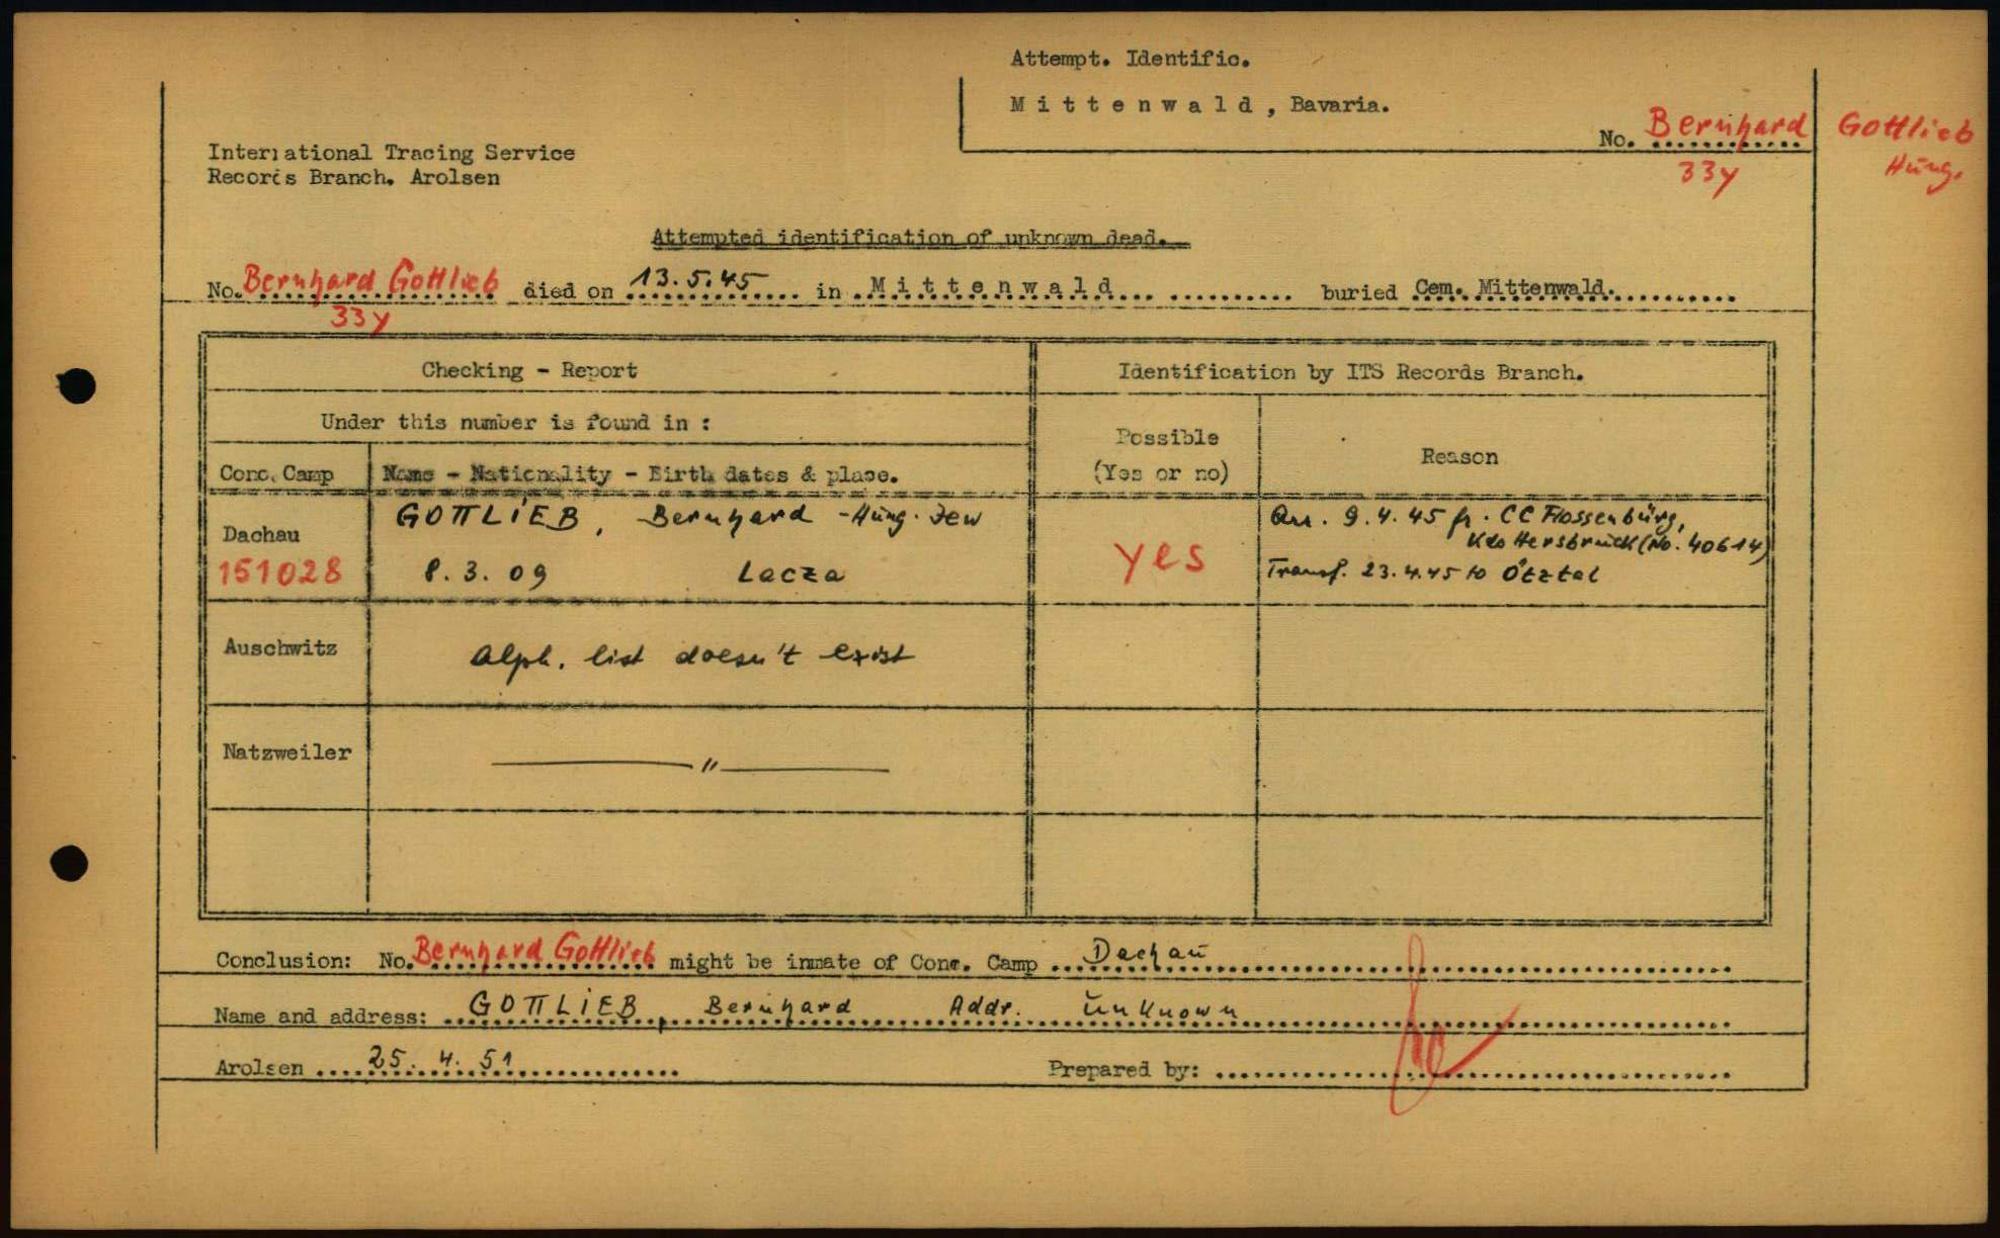 Attempt. Identific.
Mittenwald, Bavaria.
No. Bernhard Gottlieb
33y Hung.
International Tracing Service
Records Branch. Arolsen
Attempted identification of unknown dead.
No. Bernhard Gottlieb died on 13.5.45 in Mittenwald buried Cem. Mittenwald.
33y
Checking - Report Identification by ITS Records Branch.
Under this number is found in :
Possible
(Yes or no) Reason
Conc. Camp Name - Nationality - Birth dates & place.
Dachau GOTTLIEB, Bernhard - Hung. Jew Arr. 9.4.45 fr. CC Flossenbürg,
Kdo Hersbruck (No. 40614)
151028 8.3.09 Lacza yes Transf. 23.4.45 to Ötztal
Auschwitz Alph. list doesn't exist
Natzweiler — " —
Conclusion: No. Bernhard Gottlieb might be inmate of Conc. Camp Dachau
Name and address: GOTTLIEB, Bernhard Addr. unknown
Arolsen 25.4.51 Prepared by: